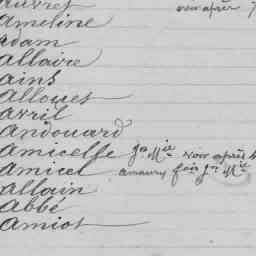 Auvret voir après
Ameline
Adam
Allaire
Ains
Allouet
Avril
Andouard
Amicelle Jn Mie voir après
Amicel amaury fois Jn Mie
Allain
Abbé
Amiot